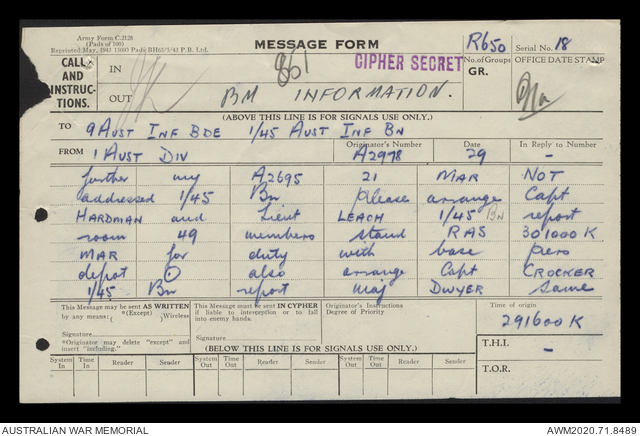 Army Form C.2128
(Pads of 100)
Reprinted May, 1943 15000 Pads BH65/3/43 P.B. Ltd.
MESSAGE FORM
861
CIPHER SECRET
R650
Serial No. 18
CALL
AND
INSTRUC-
TIONS.
IN
OUT
BM INFORMATION.
No. of Groups
GR.
OFFICE DATE STAMP
(ABOVE THIS LINE IS FOR SIGNALS USE ONLY.)
TO 9 AUST INF BDE 1/45 AUST INF BN
FROM 1 AUST DIV
Originator's Number A2978
Date 29
In Reply to Number -
further my A2695 21 MAR NOT
addressed 1/45 Bn please arrange Capt
HARDMAN and Lieut LEACH 1/45 BN report
room 49 members stand RAS 301000K
MAR for duty with base pers
depot . also arrange Capt CROCKER
1/45 Bn report Maj DWYER same
This Message may be sent AS WRITTEN
by any means: *(Except) Wireless
Signature
*Originator may delete "except" and
insert "including."
This Message must be sent IN CYPHER if
liable to interception or to fall
into enemy hands.
Signature
Originator's Instructions
Degree of Priority
Time of origin
291600K
T.H.I. -
T.O.R.
(BELOW THIS LINE IS FOR SIGNALS USE ONLY.)
System In Time In Reader Sender System Out Time Out Reader Sender System Out Time Out Reader Sender
AUSTRALIAN WAR MEMORIAL
AWM2020.71.8489